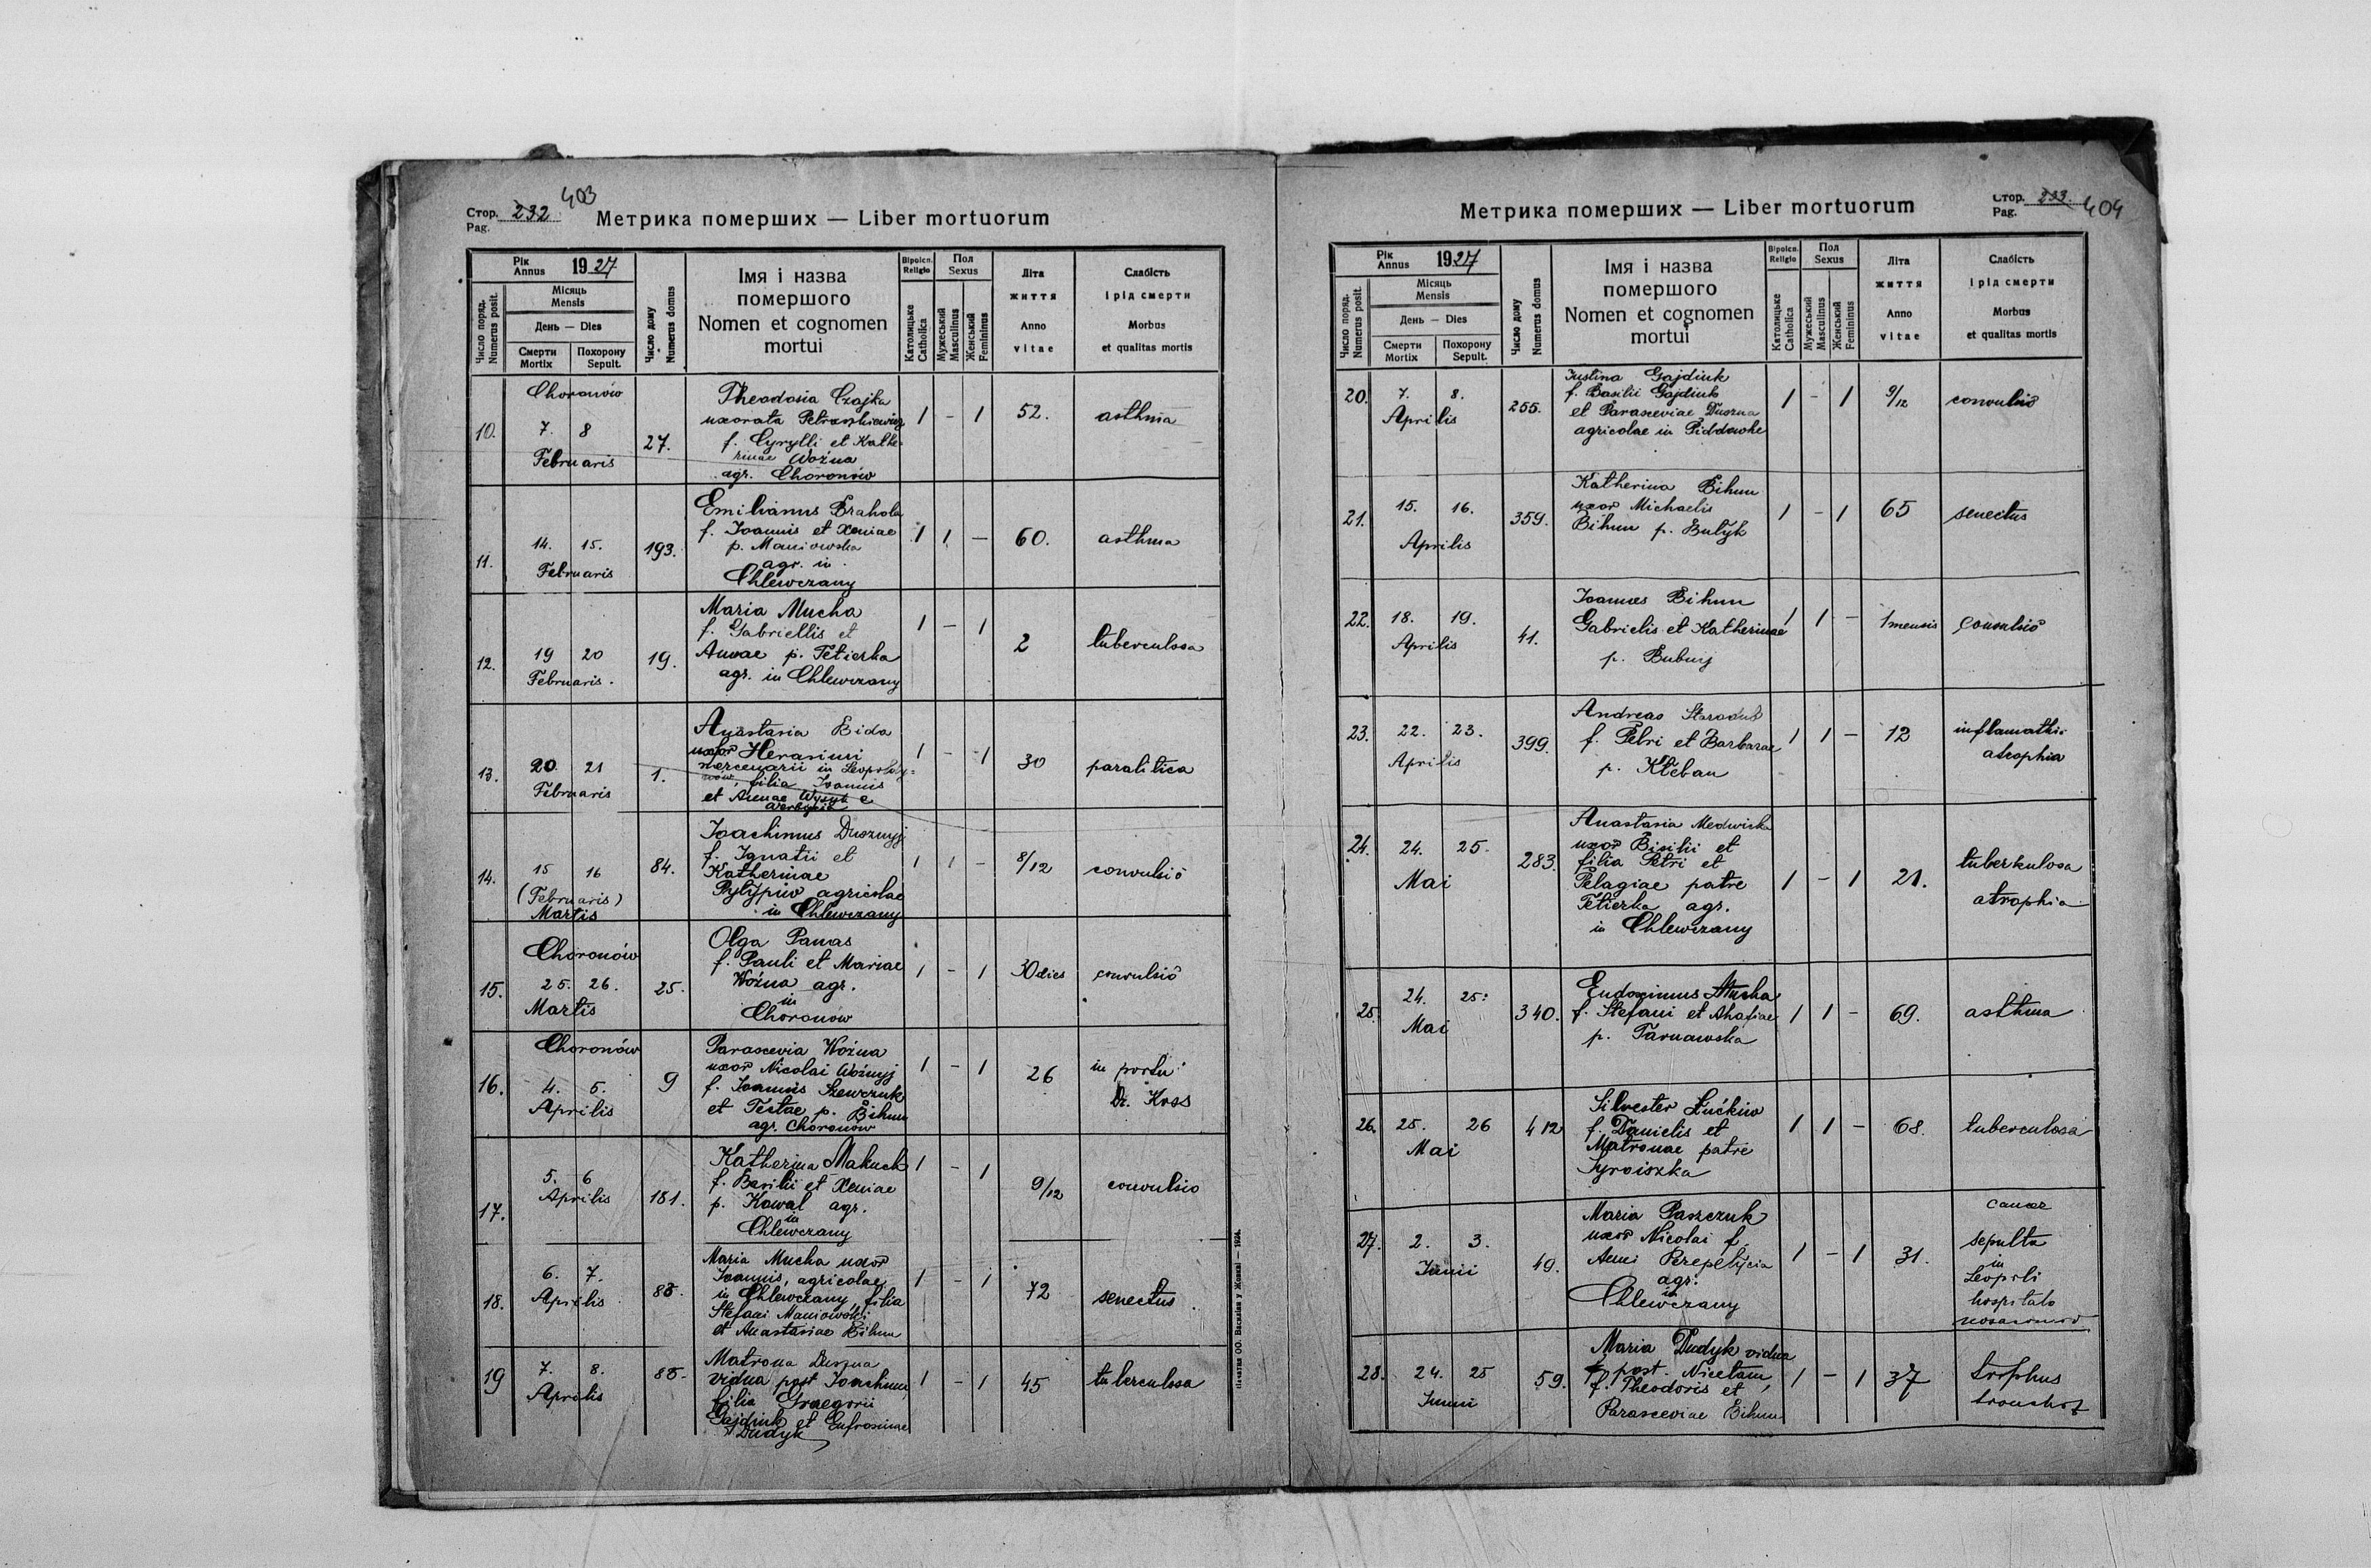 403
Стор. 232
Pag.
Метрика померших — Liber mortuorum
Рік
Annus 1927
Число поряд.
Numerus posit.
Місяць
Mensis
День — Dies
Смерти
Mortix
Похорону
Sepult.
Число дому
Numerus domus
Імя і назва
помершого
Nomen et cognomen
mortui
Віроісп.
Religio
Католицьке
Catholica
Пол
Sexus
Мужеський
Masculinus
Женський
Femininus
Літа
життя
Anno
vitae
Слабість
і рід смерти
Morbus
et qualitas mortis
10. Choronów
7. 8
Februaris
27.
Theodosia Czajka
uxorata Petraszkiewicz
f. Cyrylli et Kathe-
rinae Woźna
agr. Choronów
1 - 1 52. asthma
11. 14. 15.
Februaris
193.
Emilianus Brahola
f. Joannis et Xeniae
p. Maniowska
agr. in
Chlewczany
1 1 - 60. asthma
12. 19 20
Februaris.
19.
Maria Mucha
f. Gabriellis et
Annae p. Tetierka
agr. in Chlewczany
1 - 1 2 tuberculosa
13. 20. 21
Februaris
1.
Anastasia Bida
uxor Herasimi
mercenarii in
filia Joannis
et Annae
1 - 1 30 paralitica
14. 15 16
(Februaris)
Martis
84.
Joachimus Dusznyj
f. Ignatii et
Katherinae
Pylypiw agricolae
in Chlewczany
1 1 - 8/12 convulsio
15. Choronów
25. 26.
Martis
25.
Olga Panas
f. Pauli et Mariae
Woźna agr.
in
Choronów
1 - 1 30 dies convulsio
16. Choronów
4. 5.
Aprilis
9
Parascevia Woźna
uxor Nicolai Woźnyj
f. Joannis Szewczuk
et Teclae p. Bihun
agr. Choronów
1 - 1 26 in partu
Dr. Koss
17. 5. 6
Aprilis
181.
Katherina Makuch
f. Basilii et Xeniae
p. Kowal agr.
in
Chlewczany
1 - 1 9/12 convulsio
18. 6. 7.
Aprilis
85.
Maria Mucha uxor
Joannis, agricolae
in Chlewczany, filia
Stefani Maniowski
et Anastasiae Bihun
1 - 1 72 senectus
19 7. 8.
Aprilis
85.
Matrona Duszna
vidua post Joachimi
filia Graegorii
Gajdiuk et Eufrosinae
Dudyk
1 - 1 45 tuberculosa
Печатня ОО. Василіян у Жовкві — 1924.
Метрика померших — Liber mortuorum
Стор. 233.
Pag.
404
Рік
Annus 1927
Число поряд.
Numerus posit.
Місяць
Mensis
День — Dies
Смерти
Mortix
Похорону
Sepult.
Число дому
Numerus domus
Імя і назва
помершого
Nomen et cognomen
mortui
Віроісп.
Religio
Католицьке
Catholica
Пол
Sexus
Мужеський
Masculinus
Женський
Femininus
Літа
життя
Anno
vitae
Слабість
і рід смерти
Morbus
et qualitas mortis
20. 7. 8.
Aprilis
255.
Justina Gajdiuk
f. Basilii Gajdiuk
et Parasceviae Duszna
agricolae in Piddowhe
1 - 1 9/12 convulsio
21. 15. 16.
Aprilis
359.
Katherina Bihun
uxor Michaelis
Bihun p. Bulyk
1 - 1 65 senectus
22. 18. 19.
Aprilis
41.
Joannes Bihun
Gabrielis et Katherinae
p. Bubnij
1 1 - 1 mensis convulsio
23. 22. 23.
Aprilis
399.
Andreas Starodub
f. Petri et Barbarae
p. Kleban
1 1 - 12 inflamathio
atrophia
24. 24. 25.
Mai
283.
Anastasia Medwicka
uxor Bisilii et
filia Petri et
Pelagiae patre
Tetierka agr.
in Chlewczany
1 - 1 21. tuberkulosa
atrophia
25. 24. 25.
Mai
340.
Eudoximus Mucha
f. Stefani et Ahafiae
p. Tarnawska
1 1 - 69. asthma
26. 25. 26
Mai
412
Silvester Łućkiw
f. Danielis et
Matronae patre
Syroiszka
1 1 - 68. tuberculosa
27. 2. 3.
Junii
49.
Maria Paszczuk
uxor Nicolai f.
Anni Perepełycia
agr.
in
Chlewczany
1 - 1 31. cancer
sepulta
in
Leopoli
hospitalo
28. 24. 25
Junii
59.
Maria Dudyk vidua
post Nicetam,
f. Theodoris et
Parasceviae Bihun
1 - 1 37